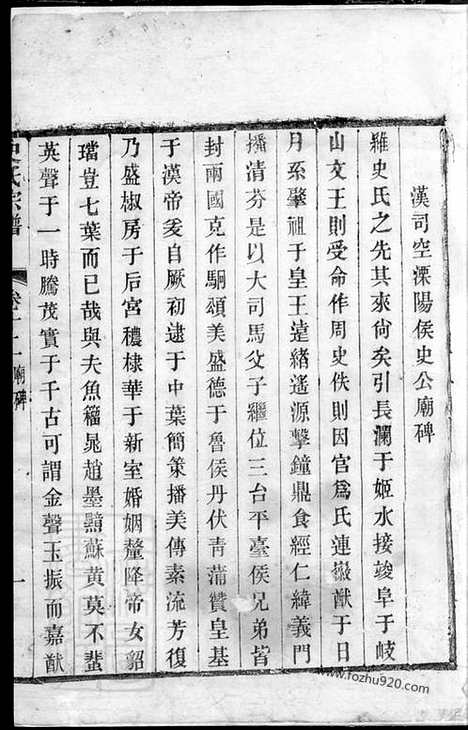 漢司空溧陽侯史公廟碑
維史氏之先其來尙矣引長瀾于姬水接竣阜于岐
山文王則受命作周史佚則因官爲氏連徽猷于日
月系肇祖于皇王遠緒遙源擊鐘鼎食經仁緯義門
播清芬是以大司馬父子繼位三台平臺侯兄弟皆
封兩國克作駉頌美盛德于魯侯丹伏青蒲贊皇基
于漢帝爰自厥初逮于中葉簡策播美傳素流芳復
乃盛椒房于后宮穠棣華于新室婚姻釐降帝女貂
璫豈七葉而已哉與夫魚 晁趙墨 蘇黃莫不蜚
英聲于一時騰茂實于千古可謂金聲玉振而嘉猷
史氏宗譜
卷二十一廟碑
一
www.fozhu920.com